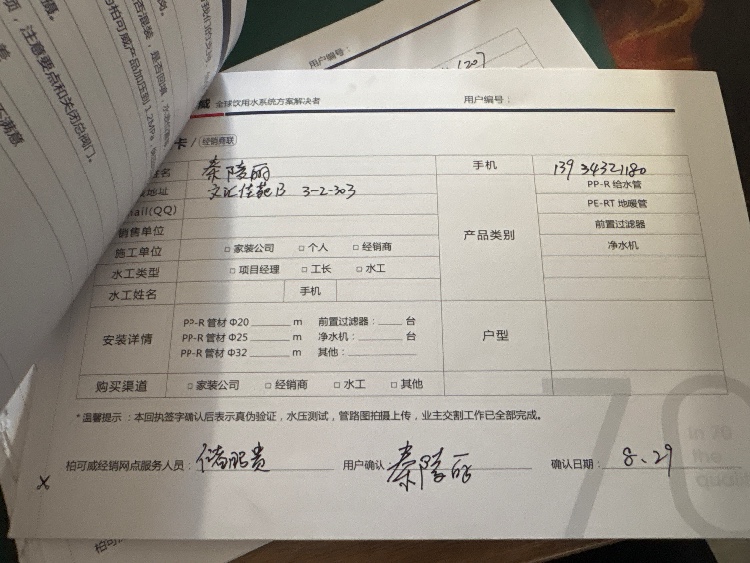 用户编号：
1207
威 全球饮用水系统方案解决者 用户编号：
卡 / 经销商联
姓名 秦陵丽 手机 13934321180
地址 文汇佳苑B 3-2-303 PP-R 给水管
mail(QQ) PE-RT 地暖管
销售单位 产品类别 前置过滤器
施工单位 □ 家装公司 □ 个人 □ 经销商 净水机
水工类型 □ 项目经理 □ 工长 □ 水工
水工姓名 手机
安装详情 PP-R 管材 Φ20 ______ m 前置过滤器：____ 台 户型
PP-R 管材 Φ25 ______ m 净水机：____ 台
PP-R 管材 Φ32 ______ m 其他：________
购买渠道 □ 家装公司 □ 经销商 □ 水工 □ 其他
*温馨提示：本回执签字确认后表示真伪验证，水压测试，管路图拍摄上传，业主交割工作已全部完成。
柏可威经销网点服务人员： 用户确认 秦陵丽 确认日期： 8、29
70
In 70
the
qualit
柏可
注意要点和关闭总阀门。
不满意